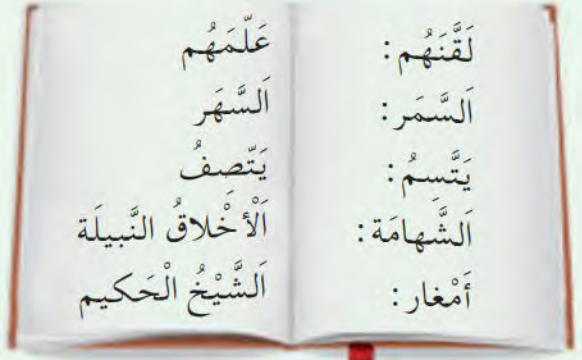 لَقَّنَهُم: عَلَّمَهُم
اَلسَّمَر: اَلسَّهَر
يَتَّسِمُ: يَتَّصِفُ
اَلشَّهامَة: اَلْأخْلاقُ النَّبيلَة
أَمْغار: اَلشَّيْخُ الْحَكيم